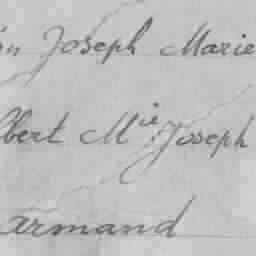 Joseph Marie
lbert Mie Joseph
armand